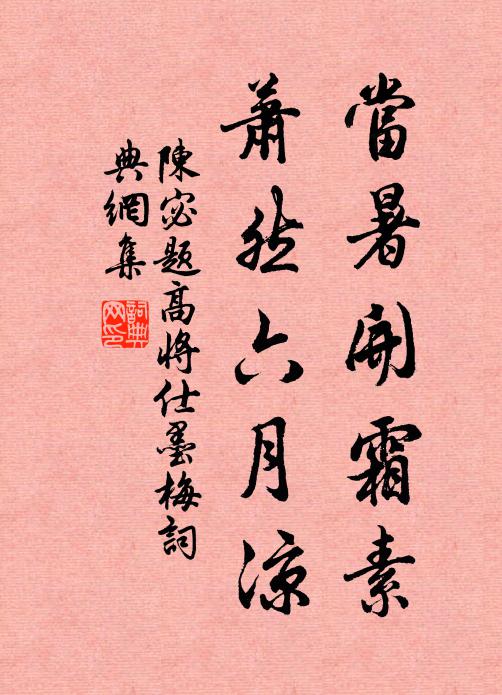 當暑開霜素
蕭然六月涼
陳宓題高將仕墨梅詞
典網集
詞典網印